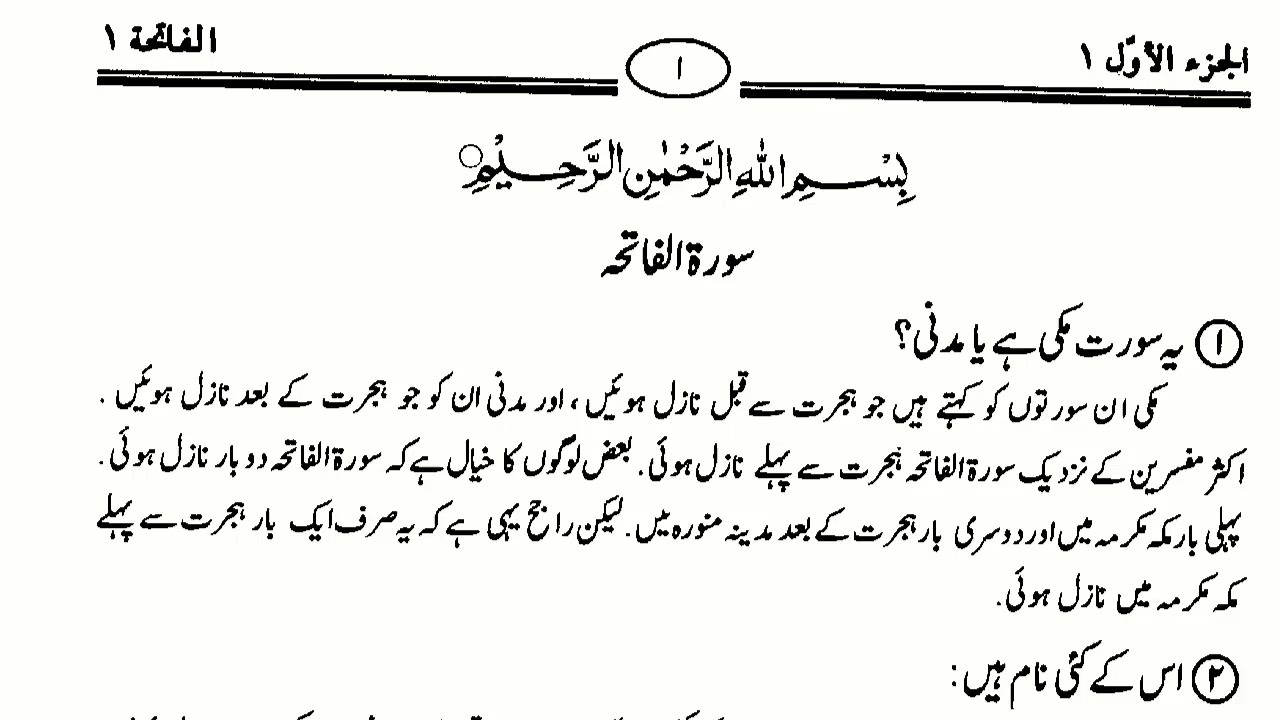 الجزء الأوّل ١
١
الفاتحة ١
بِسْمِ اللهِ الرَّحْمٰنِ الرَّحِيْمِ
سورۃ الفاتحہ
① یہ سورت مکی ہے یا مدنی؟
مکی ان سورتوں کو کہتے ہیں جو ہجرت سے قبل نازل ہوئیں، اور مدنی ان کو جو ہجرت کے بعد نازل ہوئیں.
اکثر مفسرین کے نزدیک سورۃ الفاتحہ ہجرت سے پہلے نازل ہوئی. بعض لوگوں کا خیال ہے کہ سورۃ الفاتحہ دو بار نازل ہوئی.
پہلی بار مکہ مکرمہ میں اور دوسری بار ہجرت کے بعد مدینہ منورہ میں. لیکن راجح یہی ہے کہ یہ صرف ایک بار ہجرت سے پہلے
مکہ مکرمہ میں نازل ہوئی.
② اس کے کئی نام ہیں: